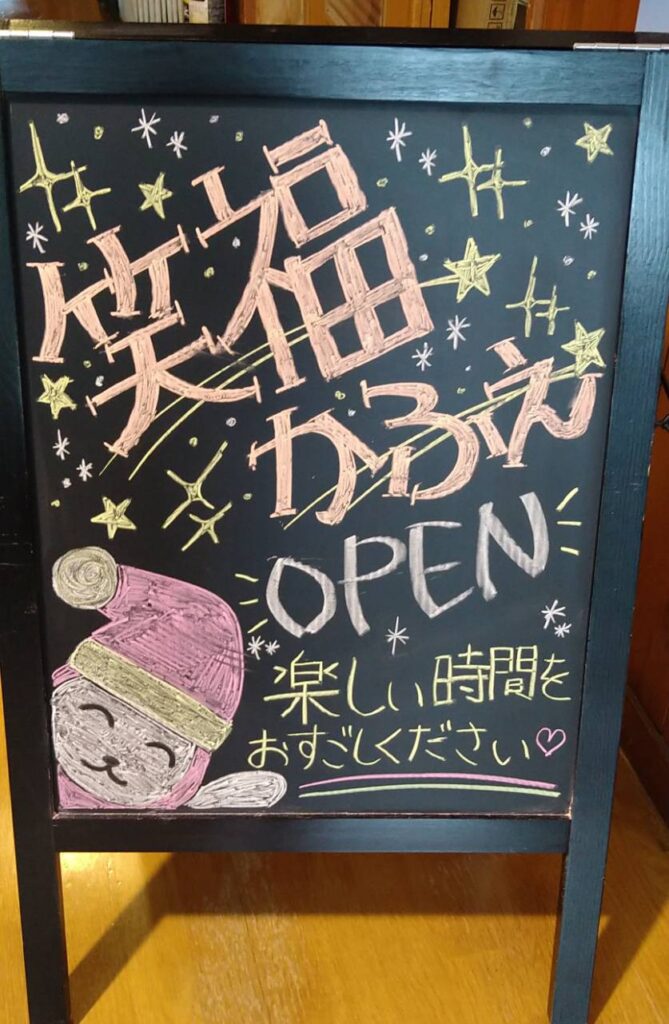 笑福
かふぇ
OPEN
楽しい時間を
おすごしください♡